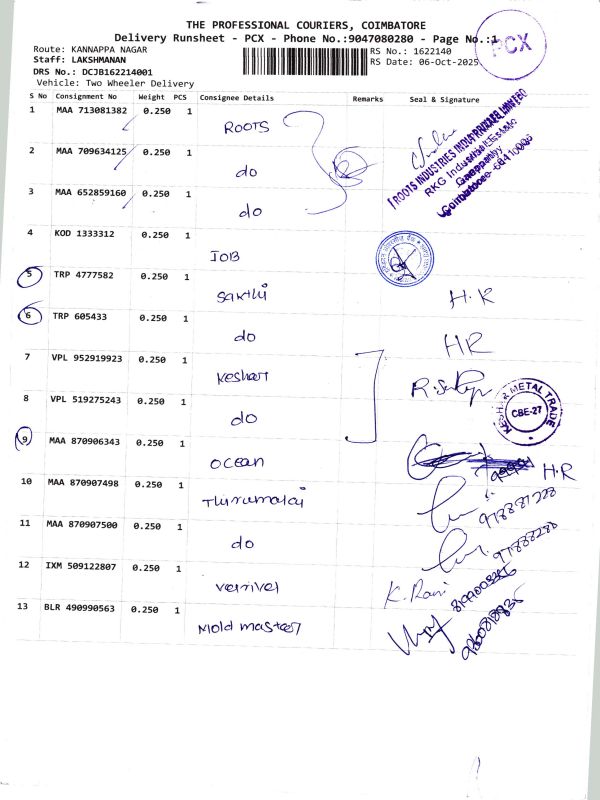 THE PROFESSIONAL COURIERS, COIMBATORE
Delivery Runsheet - PCX - Phone No.:9047080280 - Page No.:1
PCX
Route: KANNAPPA NAGAR
RS No.: 1622140
Staff: LAKSHMANAN
RS Date: 06-Oct-2025
DRS No.: DCJB162214001
Vehicle: Two Wheeler Delivery
S No Consignment No Weight PCS Consignee Details Remarks Seal & Signature
1 MAA 713081382 0.250 1
ROOTS
ROOTS INDUSTRIES INDIA PRIVATE LIMITED
RKG Industrial Estate
Ganapathy
Coimbatore - 641 006
2 MAA 709634125 0.250 1
do
3 MAA 652859160 0.250 1
do
4 KOD 1333312 0.250 1
IOB
5 TRP 4777582 0.250 1
Sakthi H.R
6 TRP 605433 0.250 1
do HR
7 VPL 952919923 0.250 1
Keshar
8 VPL 519275243 0.250 1
do
KESHAR METAL TRADE
CBE-27
9 MAA 870906343 0.250 1
ocean H.R
10 MAA 870907498 0.250 1
Thirumalai
11 MAA 870907500 0.250 1
do
12 IXM 509122807 0.250 1
K. Rani
13 BLR 490990563 0.250 1
Mold master